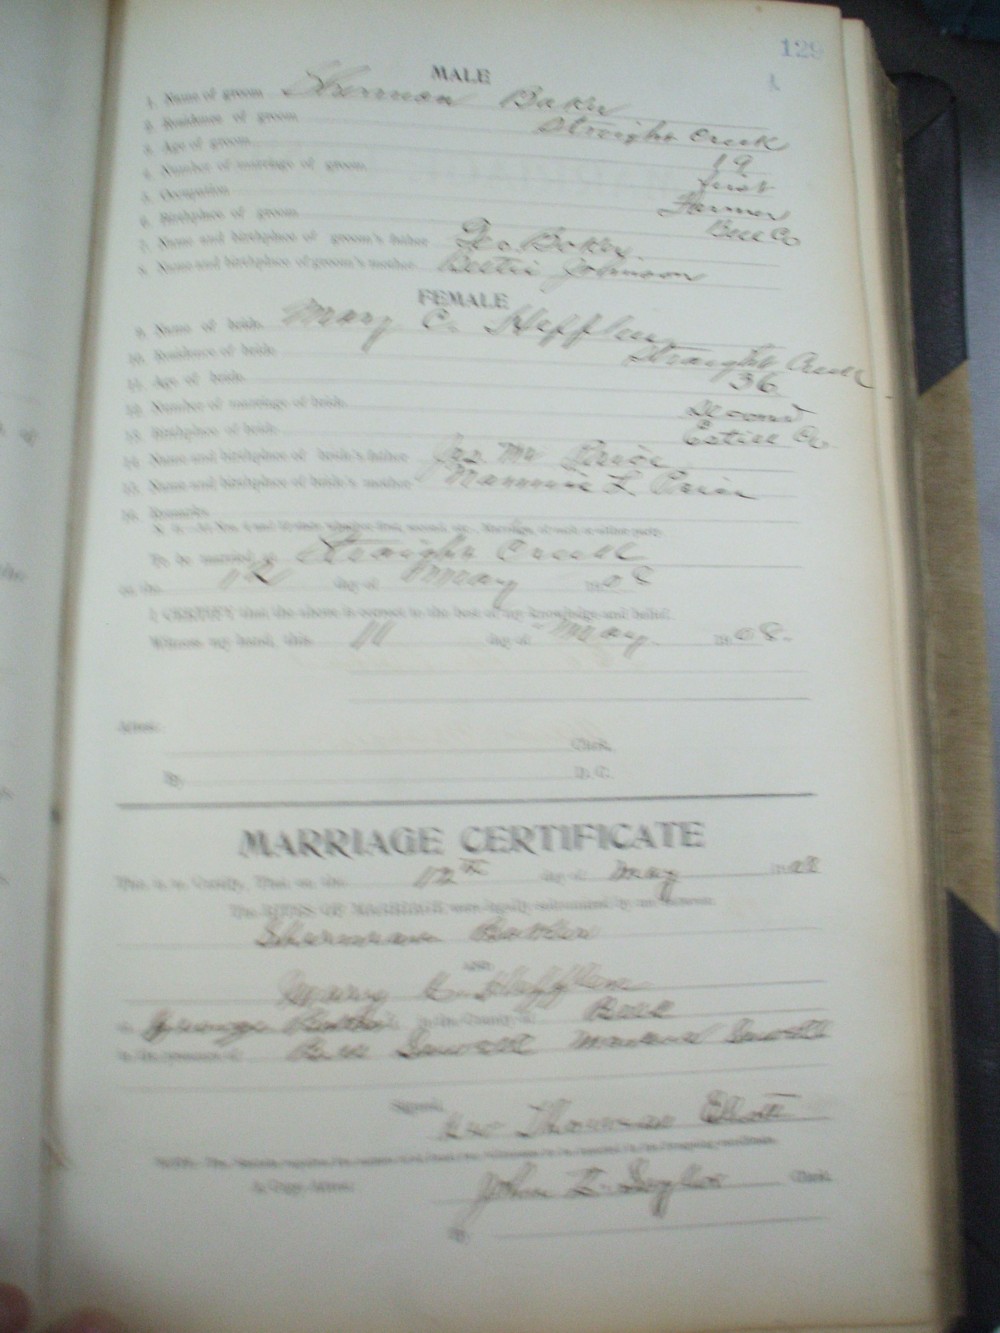 129
MALE
1. Name of groom Sherman Baker
2. Residence of groom Straight Creek
3. Age of groom 19
4. Number of marriage of groom first
5. Occupation Farmer
6. Birthplace of groom Bell Co
7. Name and birthplace of groom's father Geo Baker
8. Name and birthplace of groom's mother Bettie Johnson
FEMALE
9. Name of bride Mary C. Hefflin
10. Residence of bride Straight Creek
11. Age of bride 36
12. Number of marriage of bride Second
13. Birthplace of bride Estill Co
14. Name and birthplace of bride's father Jas Mc Price
15. Name and birthplace of bride's mother L. Price
16. Remarks
To be married at Straight Creek
on the 12 day of May 1908
I CERTIFY that the above is correct to the best of my knowledge and belief.
Witness my hand, this 11 day of May 1908.
Attest:
Clerk.
By D. C.
MARRIAGE CERTIFICATE
This is to Certify, That on the 12th day of May 1908
The RITES OF MARRIAGE were legally solemnized by me between
Sherman Baker
AND
Mary C. Hefflin
at in the County of Bell
in the presence of
Signed, Thomas
A Copy Attest: John Clerk.
By